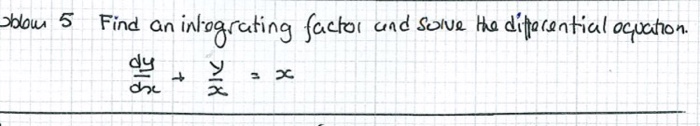 Problem 5 Find an integrating factor and solve the differential equation.
dy/dx + y/x = x